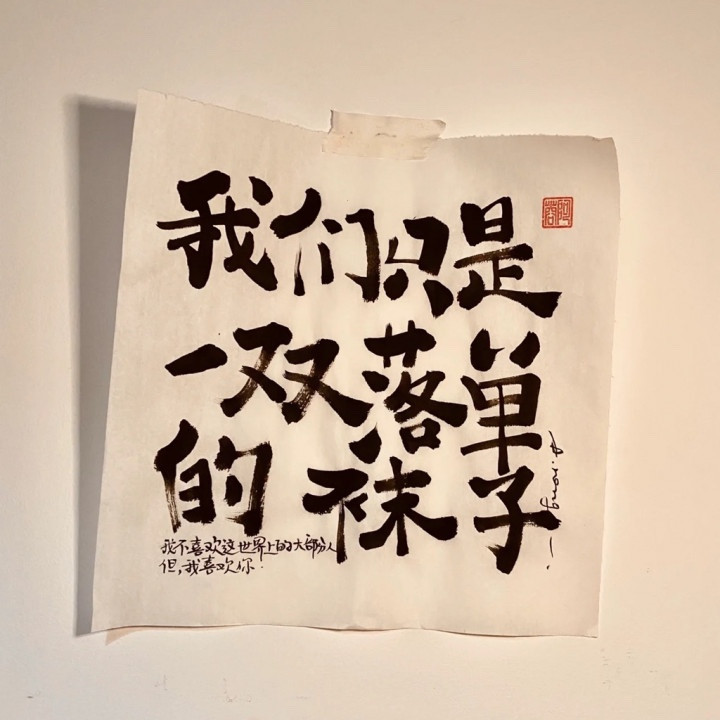 我们只是
一双落单
的袜子
我不喜欢这世界上的大部分人
但,我喜欢你.